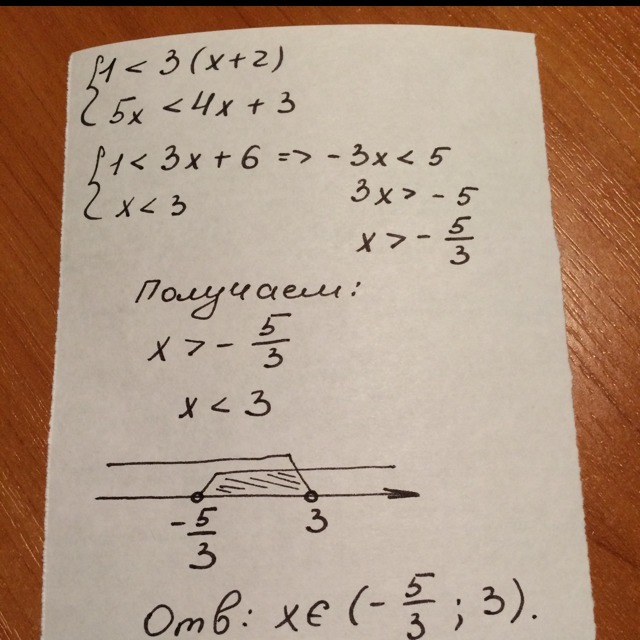 {1 < 3 (x+2)
{5x < 4x + 3
{1 < 3x + 6 => - 3x < 5
{x < 3 3x > - 5
x > - 5/3
Получаем:
x > - 5/3
x < 3
- 5/3 3
Отв: x ∈ (- 5/3 ; 3).